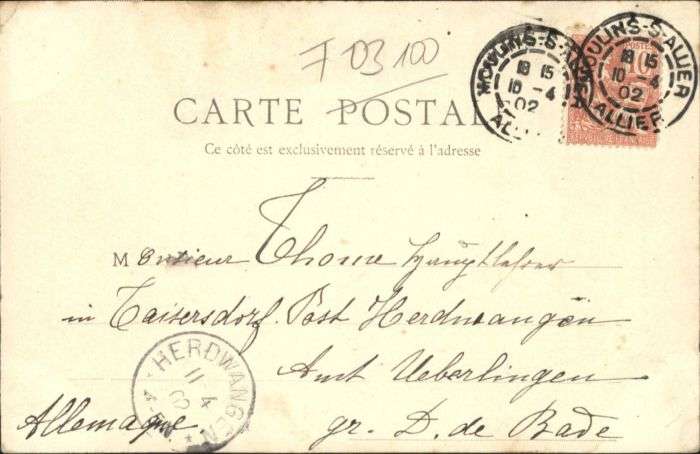 F 03 100
MOULINS-S-ALLIER
18 15
10 - 4
02
ALLIER
MOULINS-S-ALLIER
18 15
10 - 4
02
ALLIER
POSTES
10
CARTE POSTALE
Ce côté est exclusivement réservé à l'adresse
Monsieur Thome Hauptlehrer
in Taisersdorf. Post Herdwangen
Amt Ueberlingen
Allemagne gr. D. de Bade
HERDWANGEN
11
4